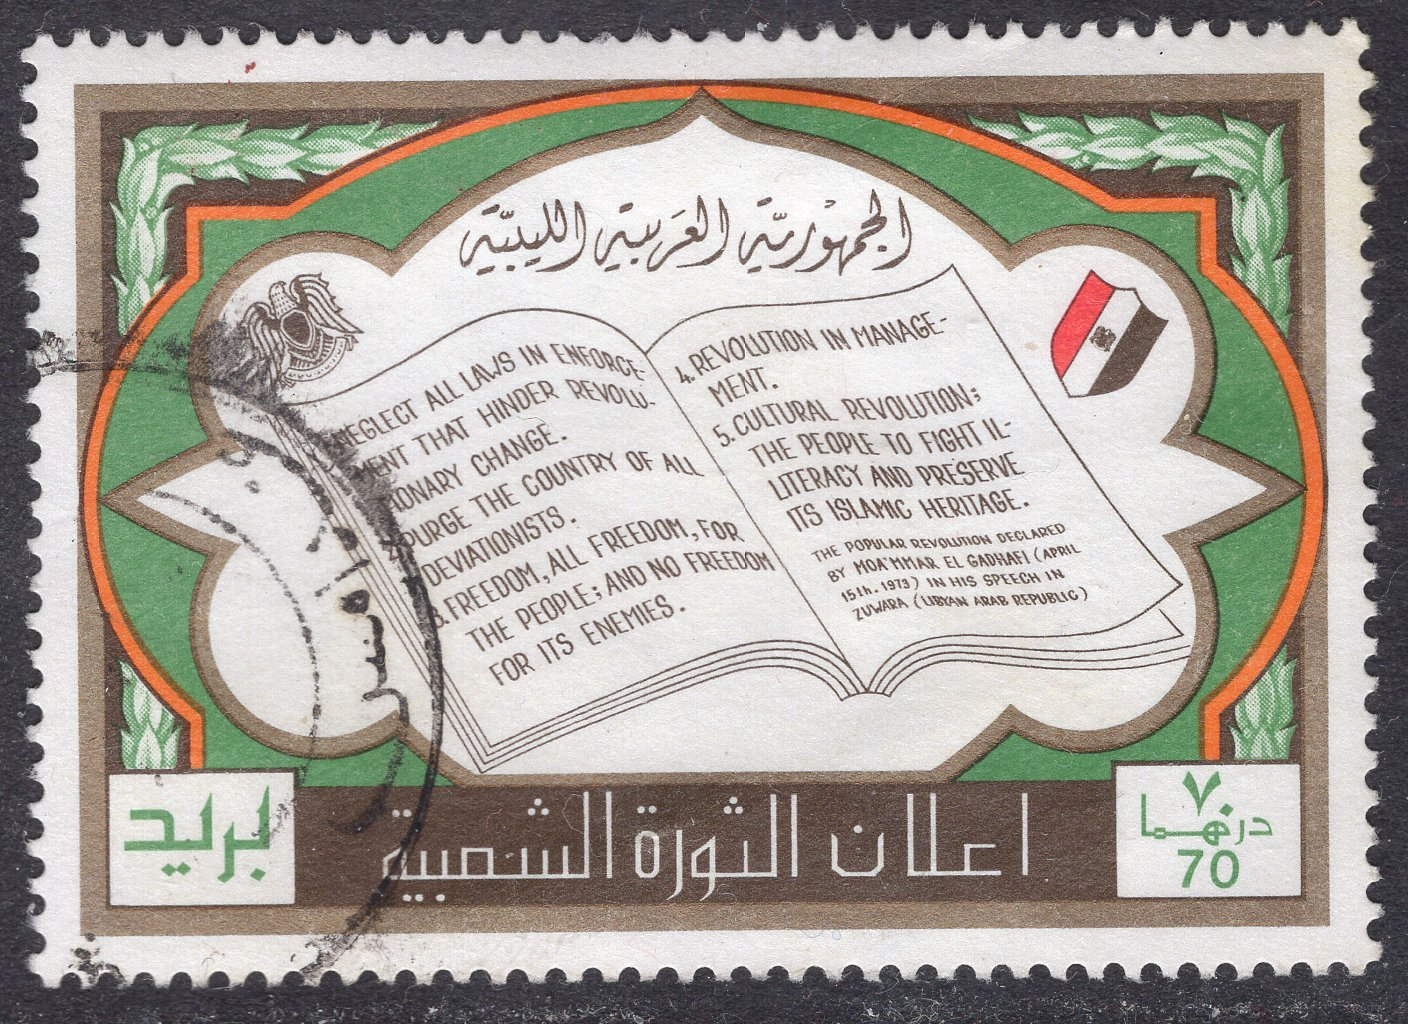 الجمهورية العربية الليبية
NEGLECT ALL LAWS IN ENFORCE-
MENT THAT HINDER REVOLU-
TIONARY CHANGE.
PURGE THE COUNTRY OF ALL
DEVIATIONISTS.
3. FREEDOM, ALL FREEDOM, FOR
THE PEOPLE; AND NO FREEDOM
FOR ITS ENEMIES.
4. REVOLUTION IN MANAGE-
MENT.
5. CULTURAL REVOLUTION;
THE PEOPLE TO FIGHT IL-
LITERACY AND PRESERVE
ITS ISLAMIC HERITAGE.
THE POPULAR REVOLUTION DECLARED
BY MOA'MMAR EL GADHAFI (APRIL
15th. 1973) IN HIS SPEECH IN
ZUWARA (LIBYAN ARAB REPUBLIC)
بريد
اعلان الثورة الشعبية
٧٠
درهما
70